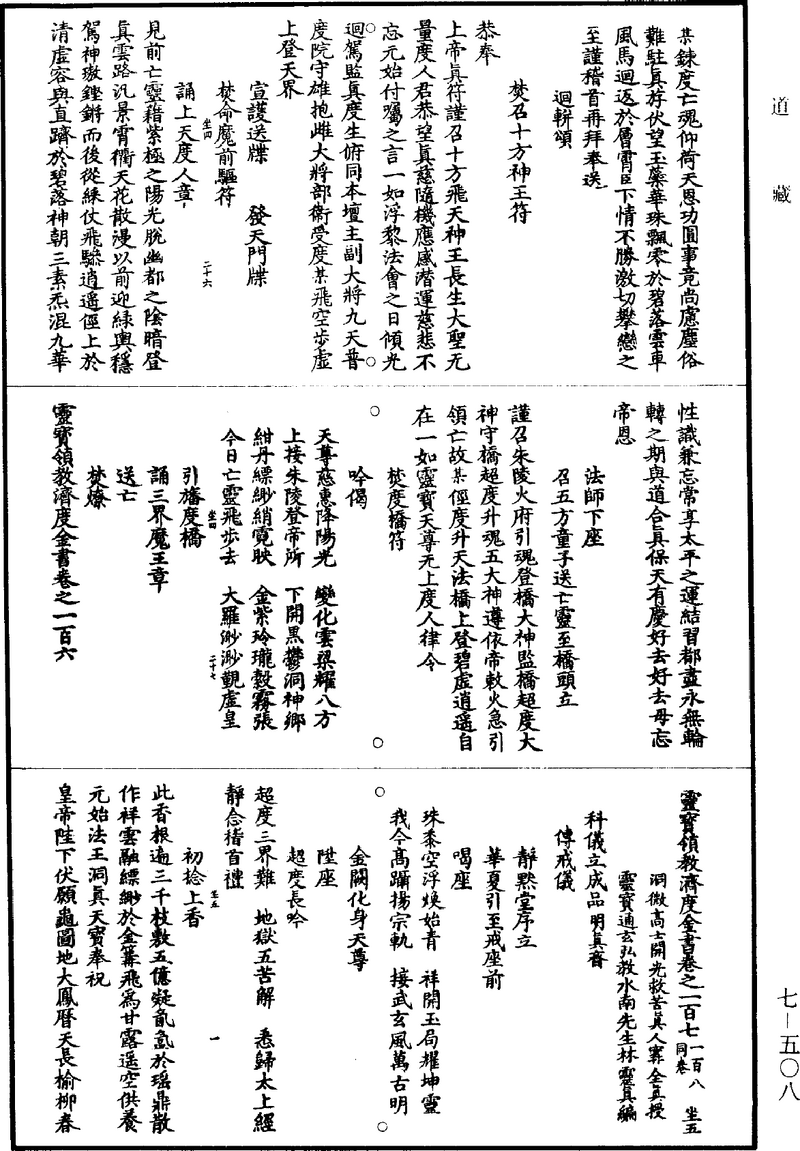 道藏
某鍊度亡魂仰荷天恩功圓事竟尚慮塵俗
難駐真斿伏望玉蘂華珠飄零於碧落雲車
風馬迴返於層霄臣下情不勝激切攀戀之
至謹稽首再拜奉送
迴軿頌
焚召十方神王符
恭奉
上帝真符謹召十方飛天神王長生大聖无
量度人君恭望真慈隨機應感潛運慈悲不
忘元始付囑之言一如浮黎法會之日傾光
迴駕監真度生俯同本壇主副大將九天普
度院守雄抱雌大將部衛受度某飛空步虛
上登天界
宣護送牒 發天門牒
焚命魔前驅符
坐四 二十六
誦上天度人章
見前亡靈藉紫極之陽光脫幽都之陰暗登
真雲路汎景霄衢天花散漫以前迎綠輿穩
駕神璈鏗鏘而後從綵仗飛驂逍遙徑上於
清虛容與直躋於碧落神朝三素炁混九華
性識兼忘常享太平之運結習都盡永無輪
轉之期與道合真保天有慶好去好去毋忘
帝恩
法師下座
召五方童子送亡靈至橋頭立
謹召朱陵火府引魂登橋大神監橋超度大
神守橋超度升魂五大神遵依帝敕火急引
領亡故某徑度升天法橋上登碧虛逍遙自
在一如靈寶天尊无上度人律令
焚度橋符
吟偈
天尊慈惠降陽光 變化雲梁耀八方
上接朱陵登帝所 下開黑鬱洞神鄉
紺丹縹緲綃霓映 金紫玲瓏縠霧張
今日亡靈飛步去 大羅渺渺覲虛皇
引旛度橋
坐四 二十七
誦三界魔王章
送亡
焚燎
靈寶領教濟度金書卷之一百六
靈寶領教濟度金書卷之一百七 一百八同卷 坐五
洞微高士開光救苦真人甯全真授
靈寶通玄弘教水南先生林靈真編
科儀立成品 明真齋
傳戒儀
靜默堂序立
華夏引至戒座前
喝座
珠黍空浮煥始青 祥開玉局耀坤靈
我今高躡揚宗軌 接武玄風萬古明
金闕化身天尊
陞座
超度長吟
超度三界難 地獄五苦解 悉歸太上經
靜念稽首禮
坐五 一
初捻上香
此香根遍三千枝敷五億疑氤氳於瑶鼎散
作祥雲融縹緲於金篝飛為甘露遥空供養
元始法王洞真天寶奉祝
皇帝陛下伏願龜圖地大鳳曆天長榆柳春
七－五〇八